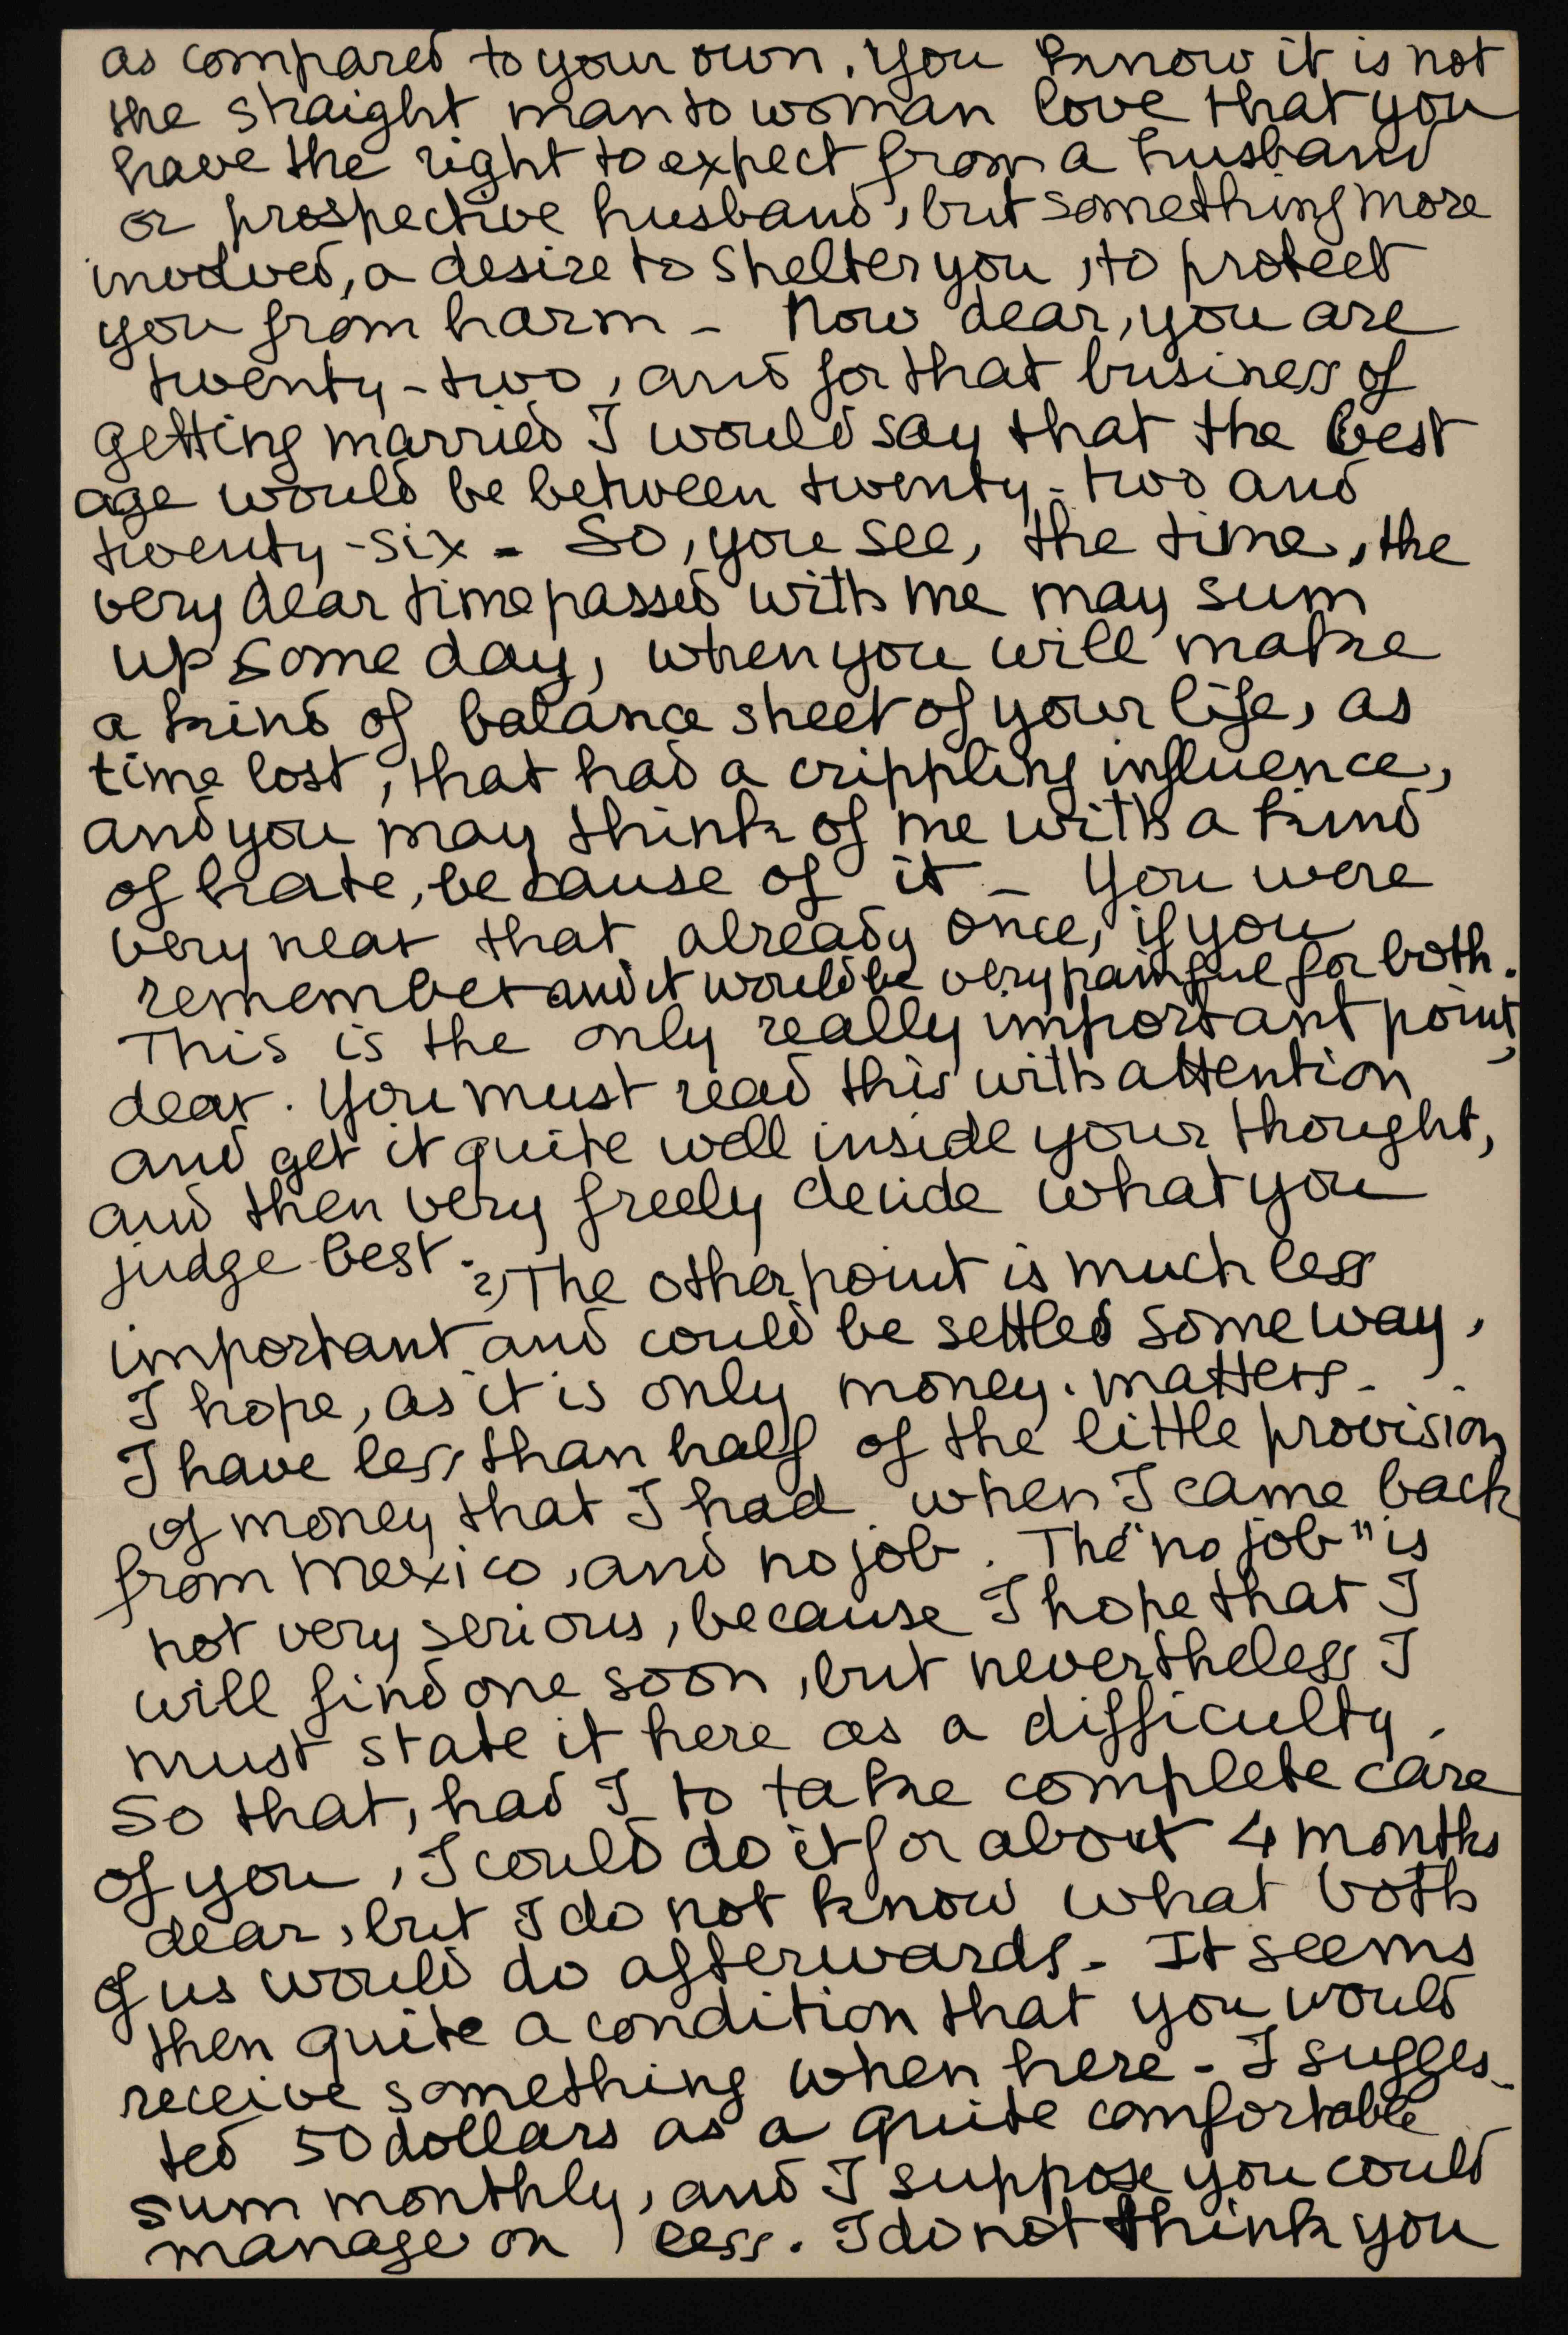 as compared to your own. You know it is not
the straight man to woman love that you
have the right to expect from a husband
or prospective husband, but something more
involved, a desire to shelter you, to protect
you from harm - Now dear, you are
twenty-two, and for that business of
getting married I would say that the best
age would be between twenty-two and
twenty-six - So, you see, the time, the
very dear time passed with me may sum
up some day, when you will make
a kind of balance sheet of your life, as
time lost, that had a crippling influence,
and you may think of me with a kind
of hate, because of it - You were
very near that already once, if you
remember and it would be very painful for both.
This is the only really important point,
dear. You must read this with attention
and get it quite well inside your thought,
and then very freely decide what you
judge best. 2) The other point is much less
important and could be settled some way,
I hope, as it is only money. matters -
I have less than half of the little provision
of money that I had when I came back
from Mexico, and no job. The "no job" is
not very serious, because I hope that I
will find one soon, but nevertheless I
must state it here as a difficulty.
So that, had I to take complete care
of you, I could do it for about 4 months
dear, but I do not know what both
of us would do afterwards - It seems
then quite a condition that you would
receive something when here - I sugges-
ted 50 dollars as a quite comfortable
sum monthly, and I suppose you could
manage on less. I do not think you